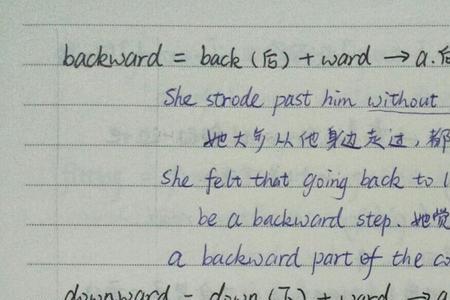 backward = back (后) + ward → a.后
She strode past him without
她大步从他身边走过，都
She felt that going back to
be a backward step. 她觉
a backward part of the co
downward = down (下) + ward → a